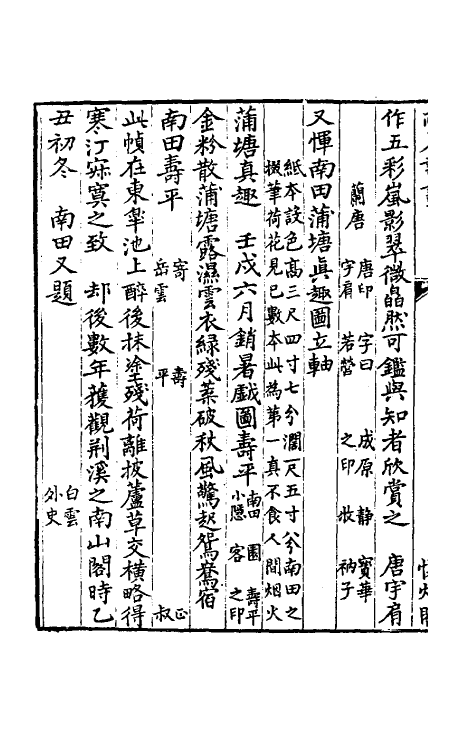 作五彩嵐影翠微晶然可鑑與知者欣賞之　唐宇肩
蘭唐　唐印宇肩　字曰若營　成原之印　靜妝　寶華衲子
又惲南田蒲塘真趣圖立軸
紙本設色高三尺四寸七分濶一尺五寸八分南田之
掇筆荷花見已數本此為第一真不食人間烟火
蒲塘真趣　壬戌六月銷暑戲圖壽平　南田小隱　園客　壽平之印
金粉散蒲塘露濕雲衣綠殘葉破秋風驚起鴛鴦宿
南田壽平　寄岳雲　壽平　正叔
此幀在東皐池上醉後抹塗殘荷離披蘆草交橫略得
寒汀寂寞之致　却後數年獲觀荆溪之南山閣時乙
丑初冬　南田又題　白雲外史